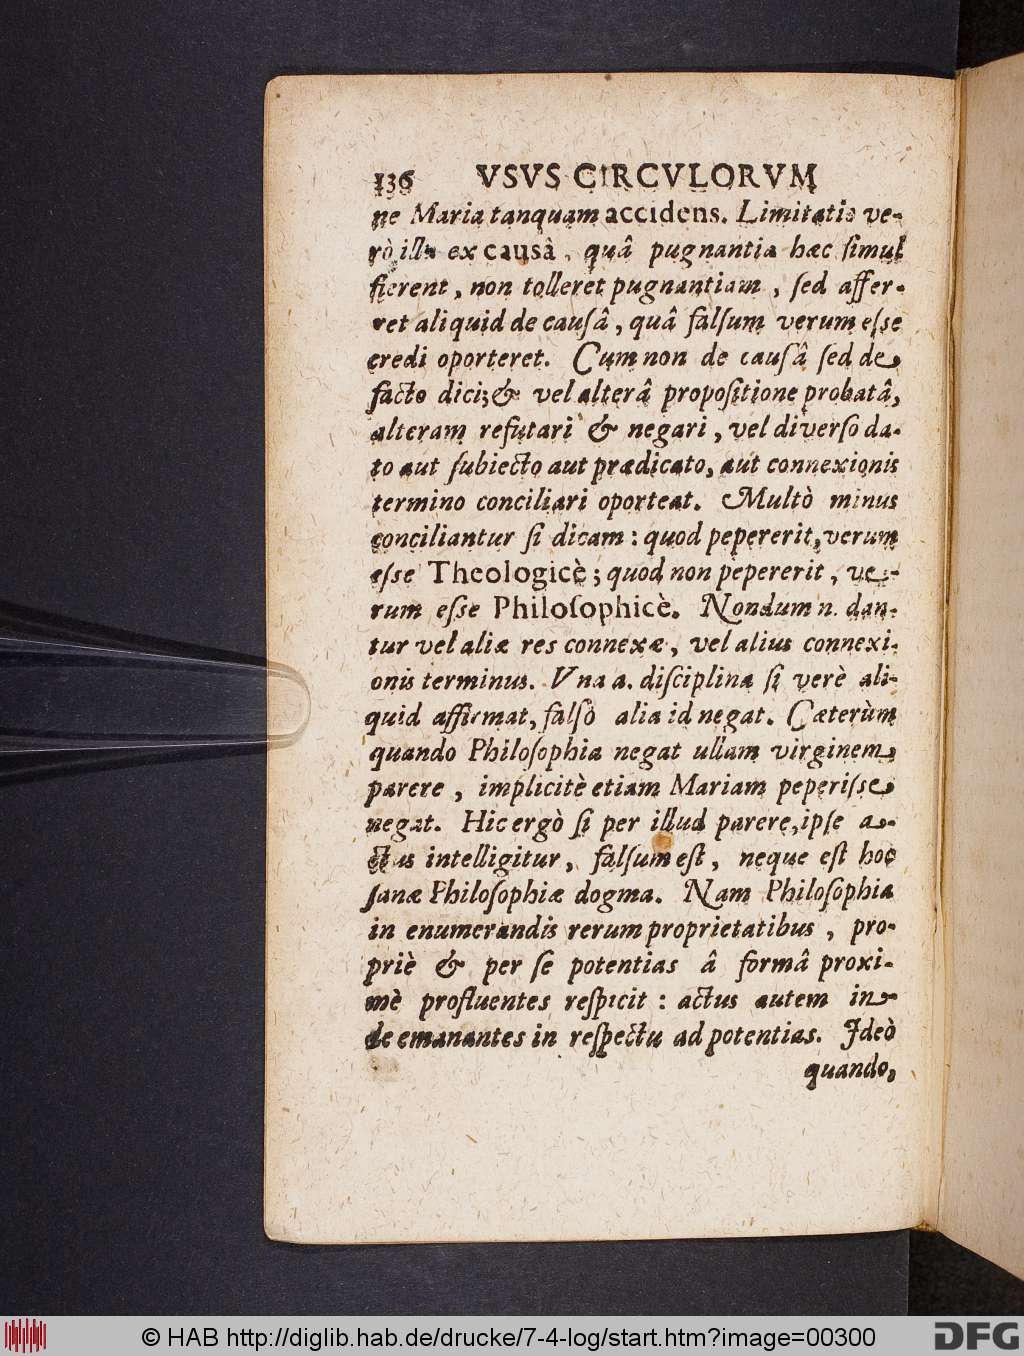 136 VSVS CIRCVLORVM
ne Maria tanquam accidens. Limitatio ve-
rò illa ex causâ, quâ pugnantia hæc ſimul
fierent, non tolleret pugnantiam, ſed affer-
ret aliquid de cauſâ, quâ falſum verum eſſe
credi oporteret. Cum non de cauſâ ſed de
facto dici; & vel alterâ propoſitione probatâ,
alteram refutari & negari, vel diverſo da-
to aut ſubiecto aut prædicato, aut connexionis
termino conciliari oporteat. Multò minus
conciliantur ſi dicam: quod pepererit, verum
eſſe Theologicè; quod non pepererit, ve-
rum eſſe Philoſophicè. Nondum n. dan-
tur vel aliæ res connexæ, vel alius connexi-
onis terminus. Vna a. diſciplina ſi verè ali-
quid affirmat, falſò alia id negat. Cæterùm
quando Philoſophia negat ullam virginem
parere, implicitè etiam Mariam peperiſſe
negat. Hic ergò ſi per illud parere, ipſe a-
ctus intelligitur, falſum eſt, neque eſt hoc
ſanæ Philoſophiæ dogma. Nam Philoſophia
in enumerandis rerum proprietatibus, pro-
priè & per ſe potentias â formâ proxi-
mè profluentes reſpicit: actus autem in-
de emanantes in reſpectu ad potentias. Ideò
quando,
© HAB http://diglib.hab.de/drucke/7-4-log/start.htm?image=00300
DFG